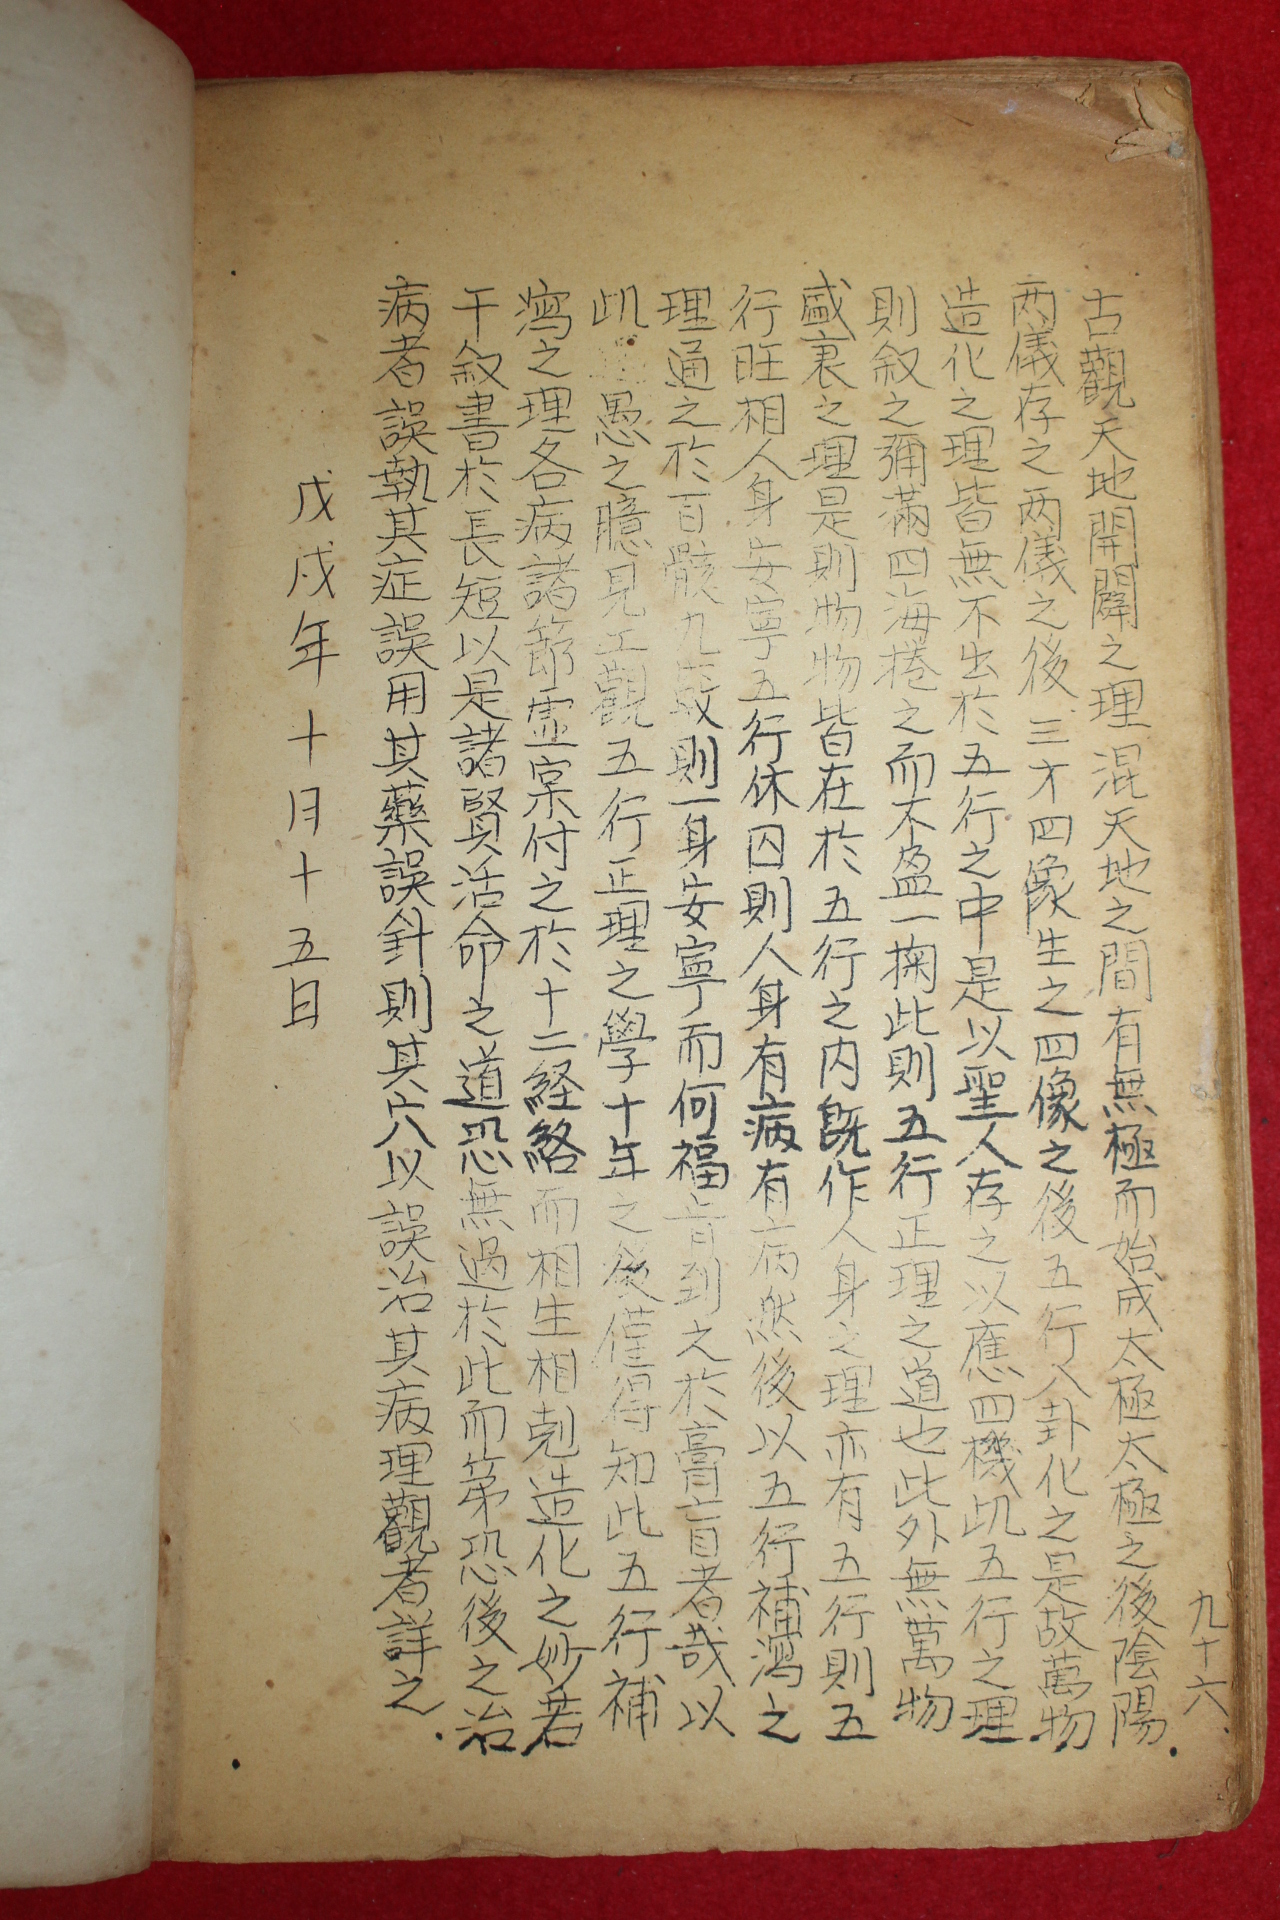 九十六
古觀天地開闢之理混天地之間有無極而始成太極太極之後陰陽
两儀存之两儀之後三才四像生之四像之後五行八卦化之是故萬物
造化之理皆無不出於五行之中是以聖人存之以應四機此五行之理
則叙之彌滿四海捲之而不盈一掬此則五行正理之道也此外無萬物
盛衰之理是則物物皆在於五行之內既作人身之理亦有五行則五
行旺相人身安寧五行休囚則人身有病有病然後以五行補瀉之
理通之於百骸九竅則一身安寧而何福盲到之於膏盲者哉以
此愚之臆見正觀五行正理之學十年之後僅得知此五行補
瀉之理各病諸節虛実付之於十二経絡而相生相剋造化之妙若
干叙書於長短以是諸賢活命之道恐無過於此而第恐後之治
病者誤執其症誤用其藥誤針則其穴以誤治其病理觀者詳之
戊戌年十月十五日